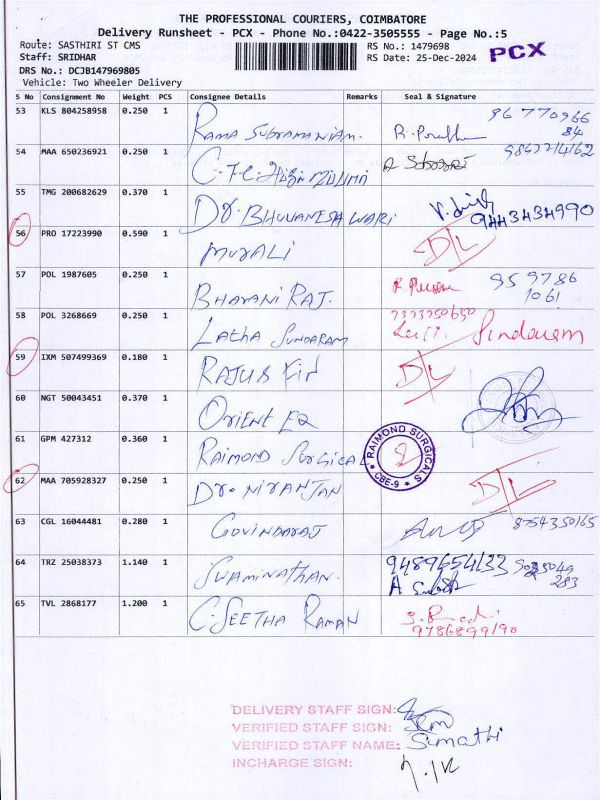 THE PROFESSIONAL COURIERS, COIMBATORE
Delivery Runsheet - PCX - Phone No.:0422-3505555 - Page No.:5
Route: SASTHIRI ST CMS
RS No.: 1479698
PCX
Staff: SRIDHAR
RS Date: 25-Dec-2024
DRS No.: DCJB147969805
Vehicle: Two Wheeler Delivery
S No Consignment No Weight PCS Consignee Details Remarks Seal & Signature
53 KLS 804258958 0.250 1 RAMA SUBRAMANIAM. 96 770966
84
54 MAA 650236921 0.250 1 9863214162
55 TMG 200682629 0.370 1 DR. BHUVANESHWARI 9443434990
56 PRO 17223990 0.590 1 MURALI D/L
57 POL 1987605 0.250 1 BHAVANI RAJ. 959786
1061
58 POL 3268669 0.250 1 LATHA SUNDARAM 7373750650
59 IXM 507499369 0.180 1 D/L
60 NGT 50043451 0.370 1 ORIENT EQ
61 GPM 427312 0.360 1 RAIMOND SURGICAL RAIMOND SURGICALS CBE-9
62 MAA 705928327 0.250 1 DR. NIRANJAN D/L
63 CGL 16044481 0.280 1 GOVINDARAJ 8754350165
64 TRZ 25038373 1.140 1 SWAMINATHAN. 9489654133
65 TVL 2868177 1.200 1 C. SEETHA RAMAN 9786899190
DELIVERY STAFF SIGN:
VERIFIED STAFF SIGN:
VERIFIED STAFF NAME: Sumathi
INCHARGE SIGN: